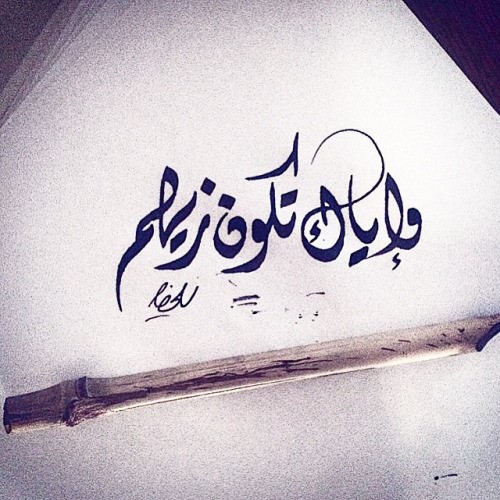 وإياك تكون زيهم